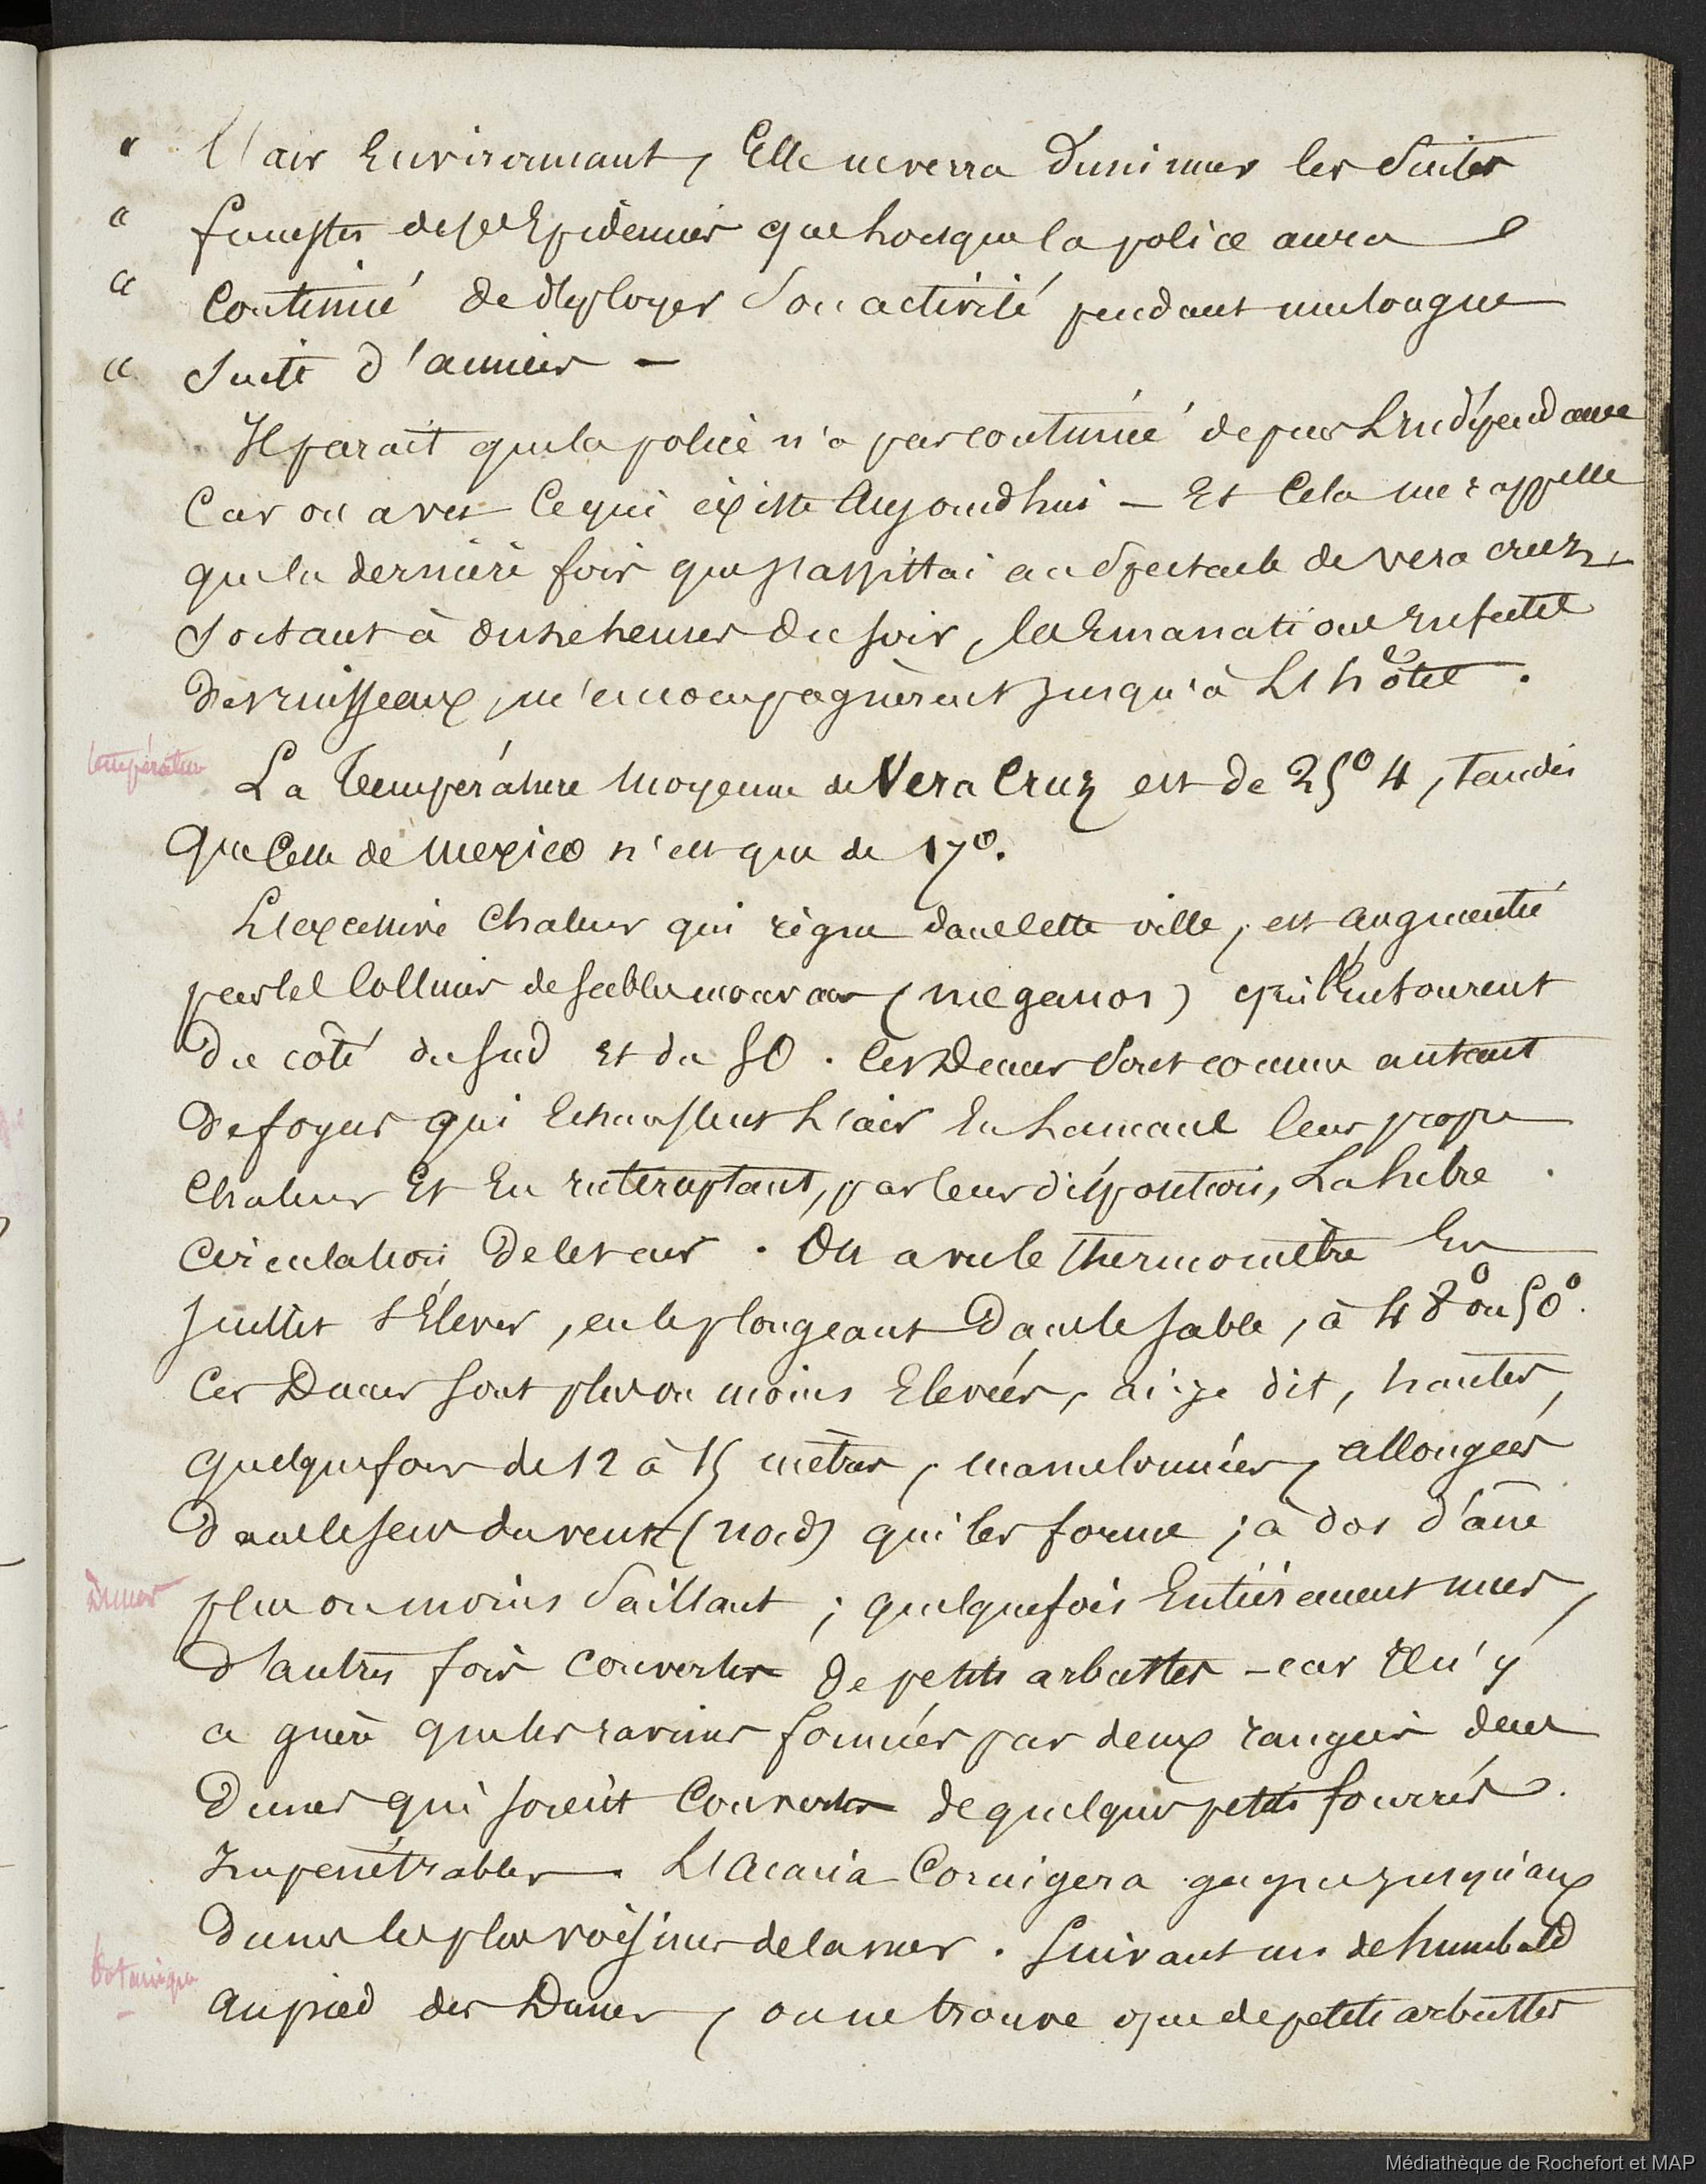 " L'air Environnant, Elle ne verra diminuer les suites
" funestes de ses Epidémies que lorsque la police aura
" Continué de déployer Son activité pendant une longue
" Suite d'années —
Il parait que la police n'a pas continué depuis L'indépendance
Car on a vu Ce qui existe Aujourd'hui — Et Cela me rappelle
que la dernière fois que j'assistai au Spectacle de vera cruz,
Sortant à onze heures du soir, les Emanations Enfectes
des ruisseaux, m'accompagnèrent jusqu'à L'hôtel.
température
La Température Moyenne de Vera Cruz est de 25° 4, tandis
que Celle de Mexico n'est que de 17°.
L'excessive Chaleur qui règne dans cette ville, est augmentée
par les Collines de sables mouvans (meganos) qui l'entourent
du côté du sud et du SO. Ces Dunes Sont comme autant
de foyers qui Echauffent L'air En Lançant leur propre
Chaleur Et En interceptant, par leur disposition, La libre
Circulation de les airs. On a vu le thermomètre En
Juillet s'élever, en le plongeant Dans le sable, à 48° ou 50°.
Ces Dunes sont plus ou moins Elevées, ai-je dit, hautes,
quelquefois de 12 à 15 mètres, mamelonnées, allongées
Dans le sens du vent (nord) qui les forme; à dos d'âne
Dunes
plus ou moins Saillant; quelquefois Entièrement nues,
D'autres fois Couvertes de petits arbustes — car Il n'y
a guère que les ravines formées par deux rangées des
Dunes qui soient Couvertes de quelques petits fourrés
Impenétrables. L'Acacia Cornigera gagne jusqu'aux
Dunes les plus voisines de la mer. Suivant mr de humbold
botanique
Au pied des Dunes, on ne trouve que de petits arbustes
Médiathèque de Rochefort et MAP